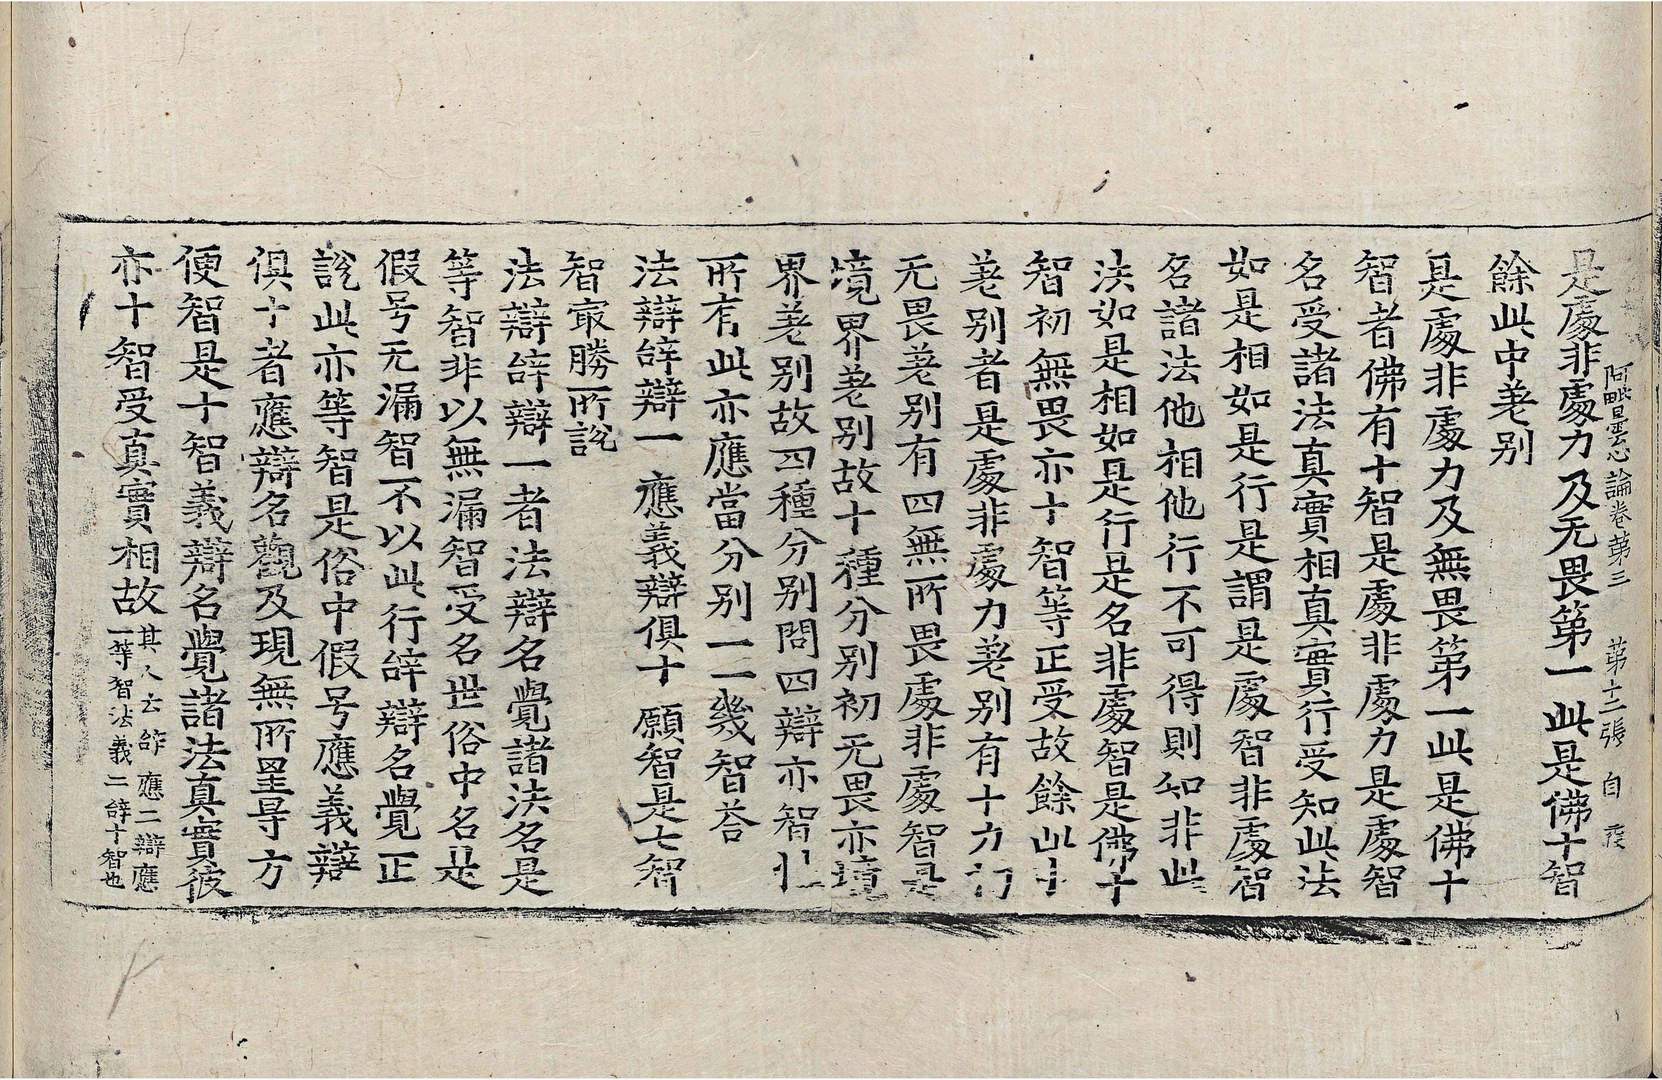 阿毗曇心論卷苐三　苐十二張　自
是處非處力　及无畏第一　此是佛十智
餘此中差别
是處非處力及無畏第一此是佛十
智者佛有十智是處非處力是處智
名受諸法真實相真實行受知此法
如是相如是行是謂是處智非處智
名諸法他相他行不可得則知非此
法如是相如是行是名非處智是佛十
智初無畏亦十智等正受故餘此中
差别者是處非處力差别有十力初
无畏差别有四無所畏處非處智是
境界差别故十種分别初无畏亦境
界差别故四種分别問四辯亦智性
所有此亦應當分别一一幾智荅
法辯辝辯一　應義辯俱十　願智是七智
智㝡勝所説
法辯辝辯一者法辯名覺諸法名是
等智非以無漏智受名世俗中名是
假号无漏智不以此行辝辯名覺正
説此亦等智是俗中假号應義辯
俱十者應辯名觀及現無所罣㝵方
便智是十智義辯名覺諸法真實彼
亦十智受真實相故
其人云辝應二辯應
一等智法義二辝十智也